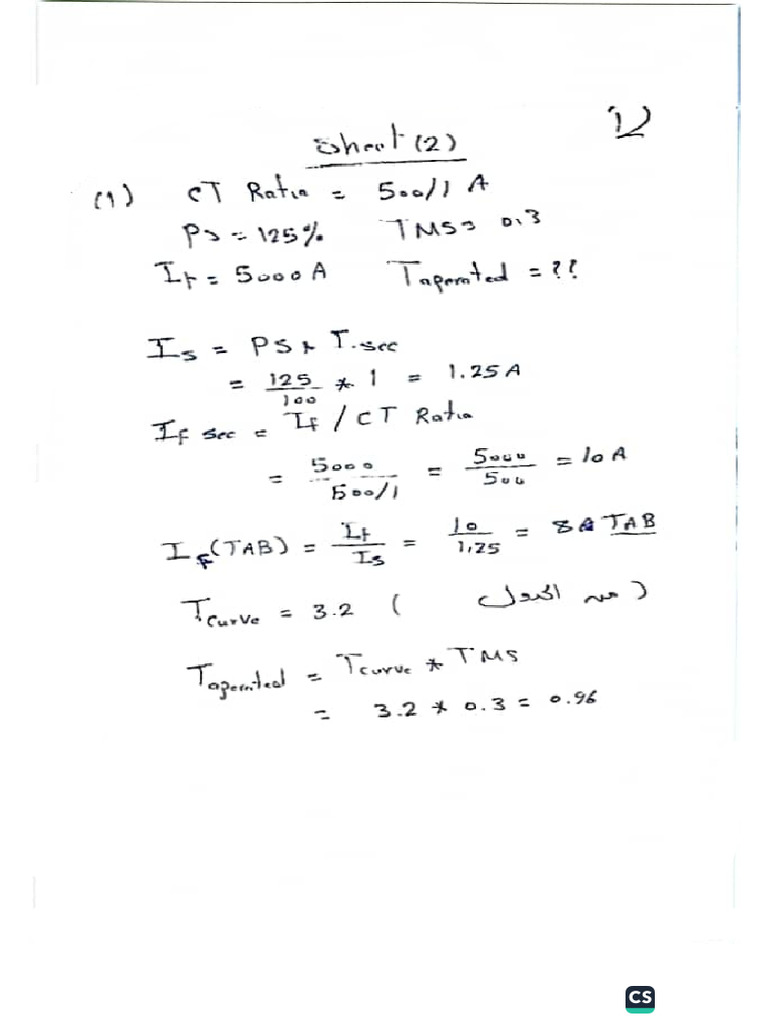 12
Sheet (2)
(1) CT Ratio = 500/1 A
PS = 125% TMS = 0.3
If = 5000A Toperated = ??
IS = PS * I.sec
= 125/100 * 1 = 1.25 A
If sec = If / CT Ratio
= 5000/500/1 = 5000/500 = 10 A
If(TAB) = If/Is = 10/1,25 = 8 TAB
TCurve = 3.2 (من الجدول)
Toperated = Tcurve * TMS
= 3.2 * 0.3 = 0.96
CS